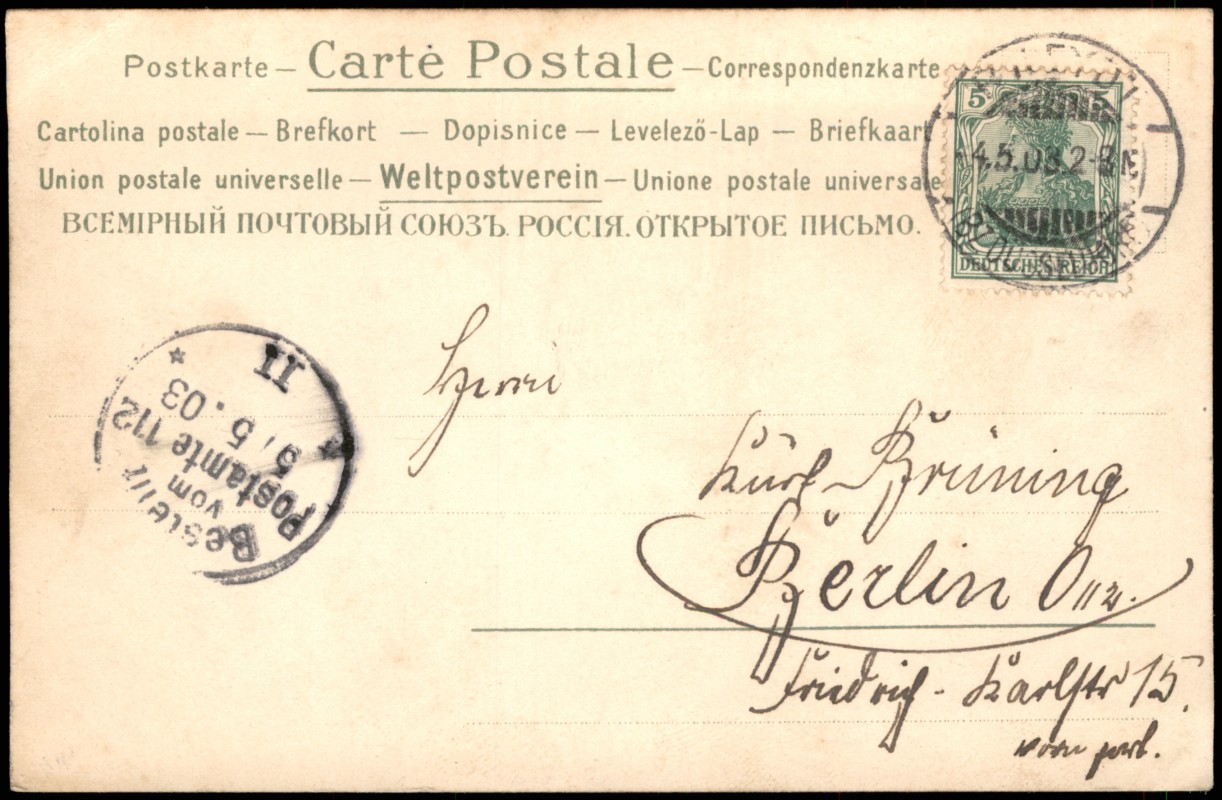 Postkarte – Carte Postale – Correspondenzkarte
Cartolina postale – Brefkort – Dopisnice – Levelező-Lap – Briefkaart
Union postale universelle – Weltpostverein – Unione postale universale
ВСЕМІРНЫЙ ПОЧТОВЫЙ СОЮЗЪ. РОССІЯ. ОТКРЫТОЕ ПИСЬМО.
5 5
4.5.03.2-3N
DEUTSCHES REICH
Bestellt
vom
Postamte 112
5/5.03
II
Herrn
Kurt Brüning
Berlin O 112.
Friedrich-Karlstr 15.
vorn part.